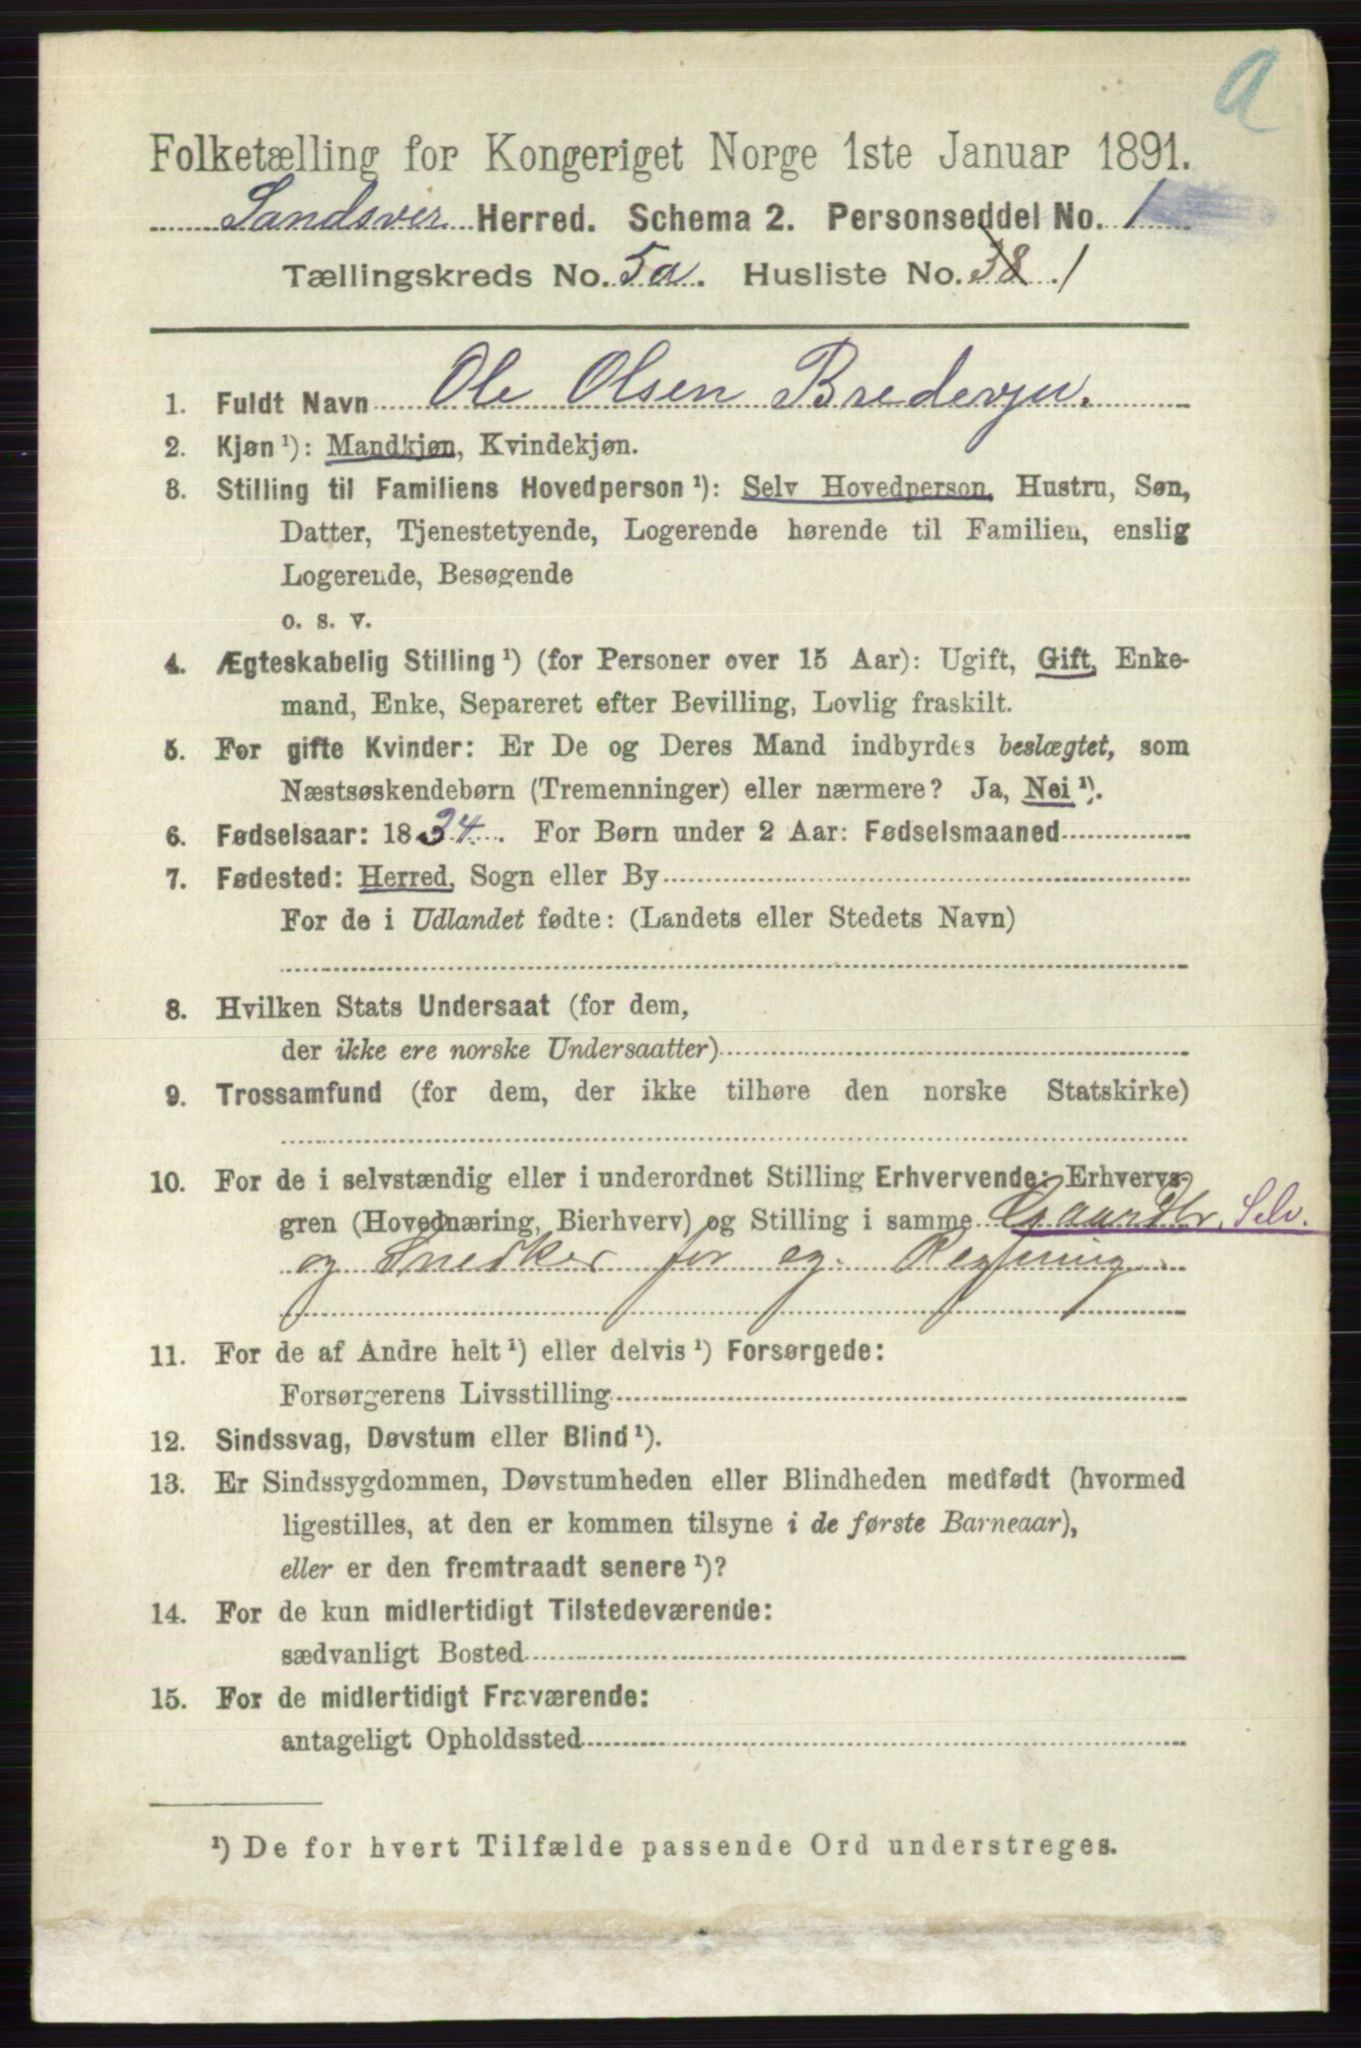 a
Folketælling for Kongeriget Norge 1ste Januar 1891.
Sandsvær Herred. Schema 2. Personseddel No. 1
Tællingskreds No. 5a. Husliste No. 38 1
1. Fuldt Navn Ole Olsen Bredevju.
2. Kjøn¹): Mandkjøn, Kvindekjøn.
3. Stilling til Familiens Hovedperson¹): Selv Hovedperson, Hustru, Søn,
Datter, Tjenestetyende, Logerende hørende til Familien, enslig
Logerende, Besøgende
o. s. v.
4. Ægteskabelig Stilling¹) (for Personer over 15 Aar): Ugift, Gift, Enke-
mand, Enke, Separeret efter Bevilling, Lovlig fraskilt.
5. For gifte Kvinder: Er De og Deres Mand indbyrdes beslægtet, som
Næstsøskendebørn (Tremenninger) eller nærmere? Ja, Nei¹).
6. Fødselsaar: 1834. For Børn under 2 Aar: Fødselsmaaned
7. Fødested: Herred, Sogn eller By
For de i Udlandet fødte: (Landets eller Stedets Navn)
8. Hvilken Stats Undersaat (for dem,
der ikke ere norske Undersaatter)
9. Trossamfund (for dem, der ikke tilhøre den norske Statskirke)
10. For de i selvstændig eller i underordnet Stilling Erhvervende: Erhvervs-
gren (Hovednæring, Bierhverv) og Stilling i samme Gaardbr. Selv.
og Snedker for eg. Regning.
11. For de af Andre helt¹) eller delvis¹) Forsørgede:
Forsørgerens Livsstilling
12. Sindssvag, Døvstum eller Blind¹).
13. Er Sindssygdommen, Døvstumheden eller Blindheden medfødt (hvormed
ligestilles, at den er kommen tilsyne i de første Barneaar),
eller er den fremtraadt senere¹)?
14. For de kun midlertidigt Tilstedeværende:
sædvanligt Bosted
15. For de midlertidigt Fraværende:
antageligt Opholdssted
¹) De for hvert Tilfælde passende Ord understreges.